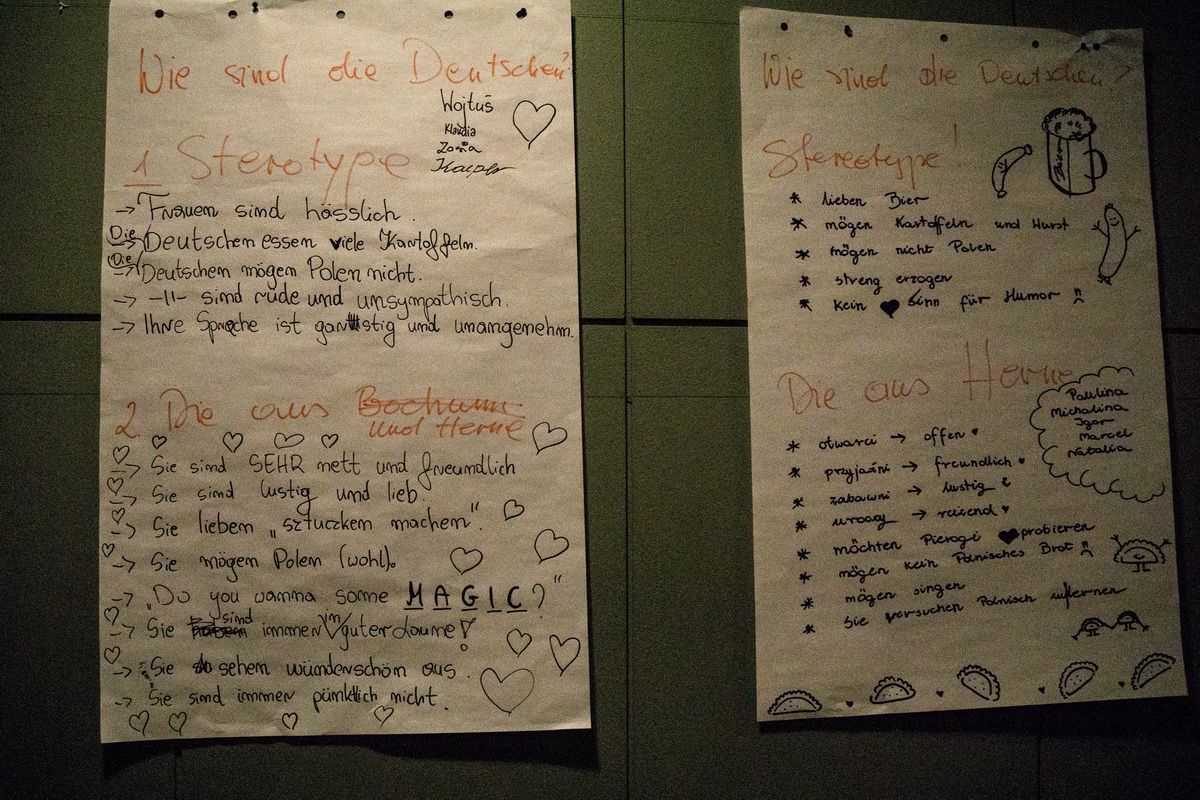 Wie sind die Deutschen?
Wojtuś
Klaudia
Zosia
Kacper
1 Sterotype
-> Frauen sind hässlich.
-> Die Deutschen essen viele Kartoffeln.
-> (Die) Deutschen mögen Polen nicht.
-> -||- sind rude und unsympathisch.
-> Ihre Sprache ist garstig und unangenehm.
2. Die aus Bochum
und Herne
-> Sie sind SEHR nett und freundlich
-> Sie sind lustig und lieb.
-> Sie lieben „sztuczken machen".
-> Sie mögen Polen (wohl).
-> „Do you wanna some MAGIC?"
-> Sie sind immer im guter Laune!
-> Sie sehen wünderschön aus.
-> Sie sind immer pünktlich nicht.
Wie sind die Deutschen?
Stereotype!
* lieben Bier
* mögen Kartoffeln und Wurst
* mögen nicht Polen
* streng erzogen
* kein Sinn für Humor
Die aus Herne
Paulina
Michalina
Igor
Marcel
Natalia
* otwarci -> offen
* przyjaźni -> freundlich
* zabawni -> lustig
* uroczy -> reisend
* möchten Pierogi probieren
* mögen kein Polnisches Brot
* mögen singen
* Sie versuchen Polnisch